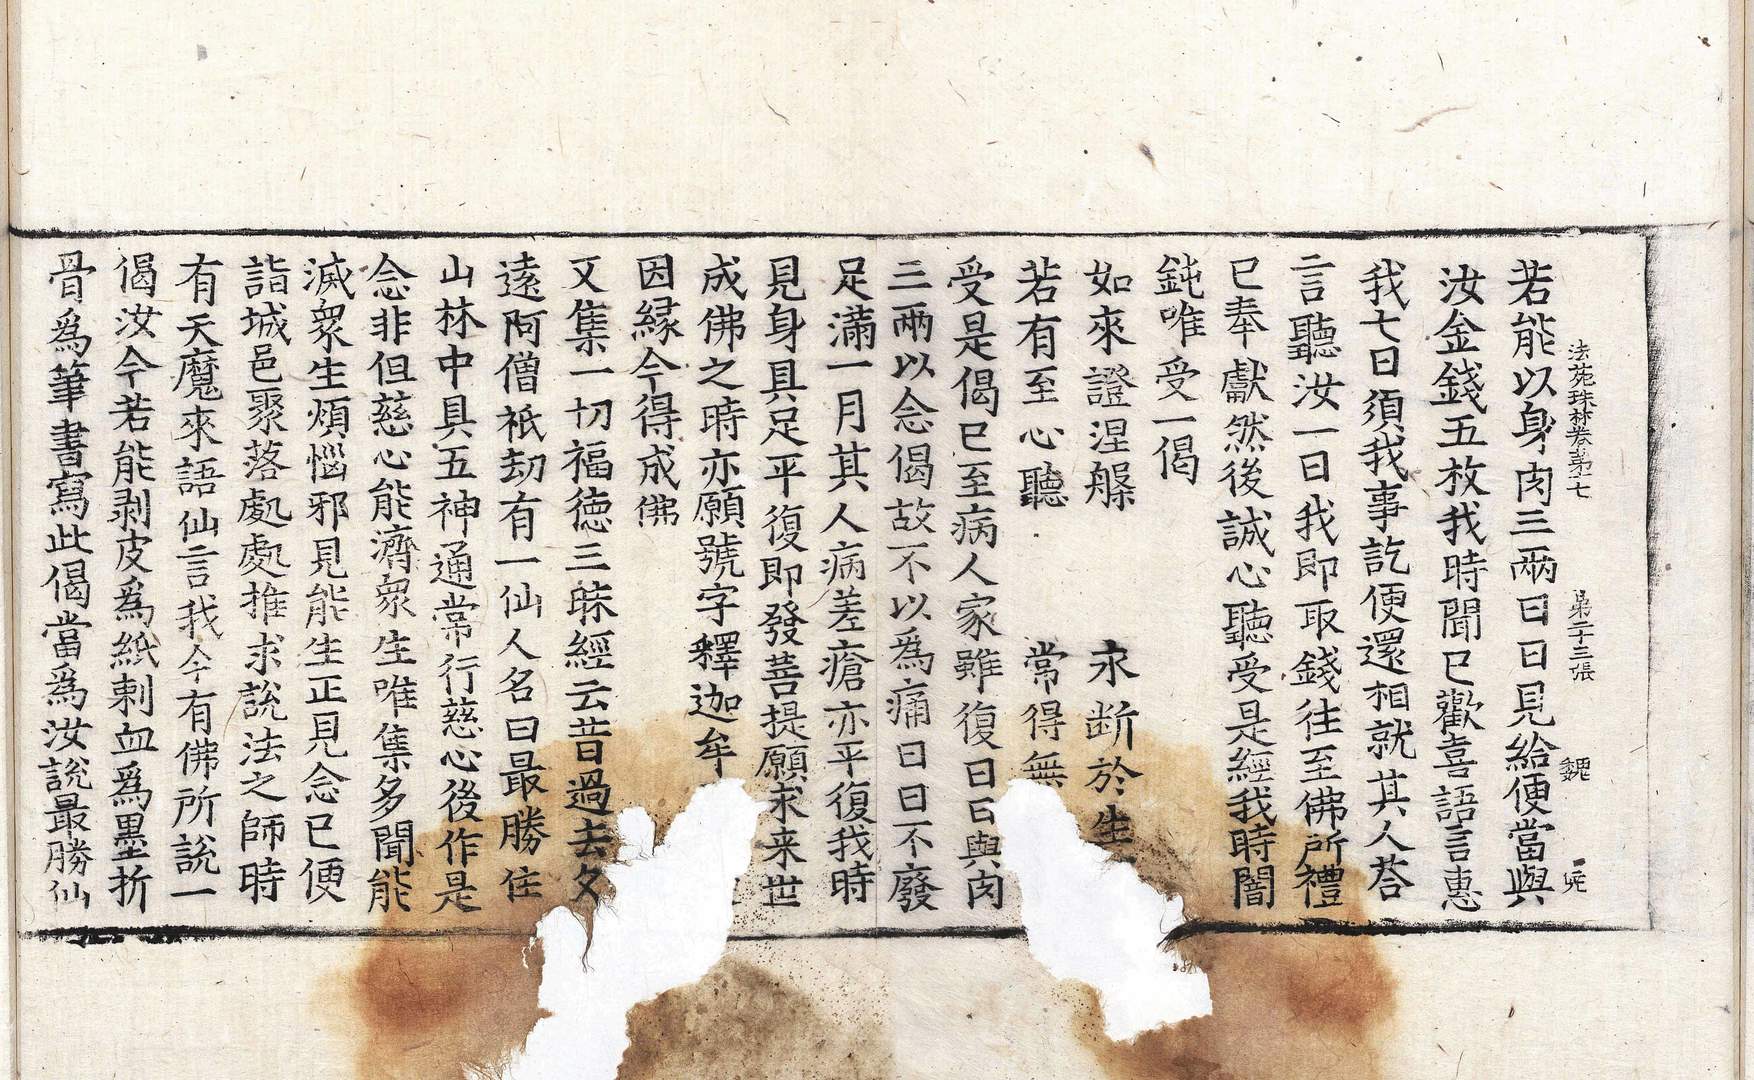 法苑珠林卷第十七 第二十三張 魏 兇
若能以身肉三兩日日見給便當與
汝金錢五枚我時聞已歡喜語言惠
我七日須我事訖便還相就其人荅
言聽汝一日我即取錢往至佛所禮
已奉獻然後誠心聽受是經我時闇
鈍唯受一偈
如來證涅槃 永断於生
若有至心聽 常得無
受是偈已至病人家雖復日日與肉
三兩以念偈故不以為痛日日不廢
足滿一月其人病差瘡亦平復我時
見身具足平復即發菩提願求来世
成佛之時亦願號字釋迦牟
因縁今得成佛
又集一切福德三昧經云昔過去久
遠阿僧祇劫有一仙人名曰最勝住
山林中具五神通常行慈心後作是
念非但慈心能濟衆生唯集多聞能
滅衆生煩惱邪見能生正見念已便
詣城邑聚落處處推求說法之師時
有天魔來語仙言我今有佛所說一
偈汝今若能剥皮為紙刺血為墨折
骨為筆書寫此偈當為汝說最勝仙